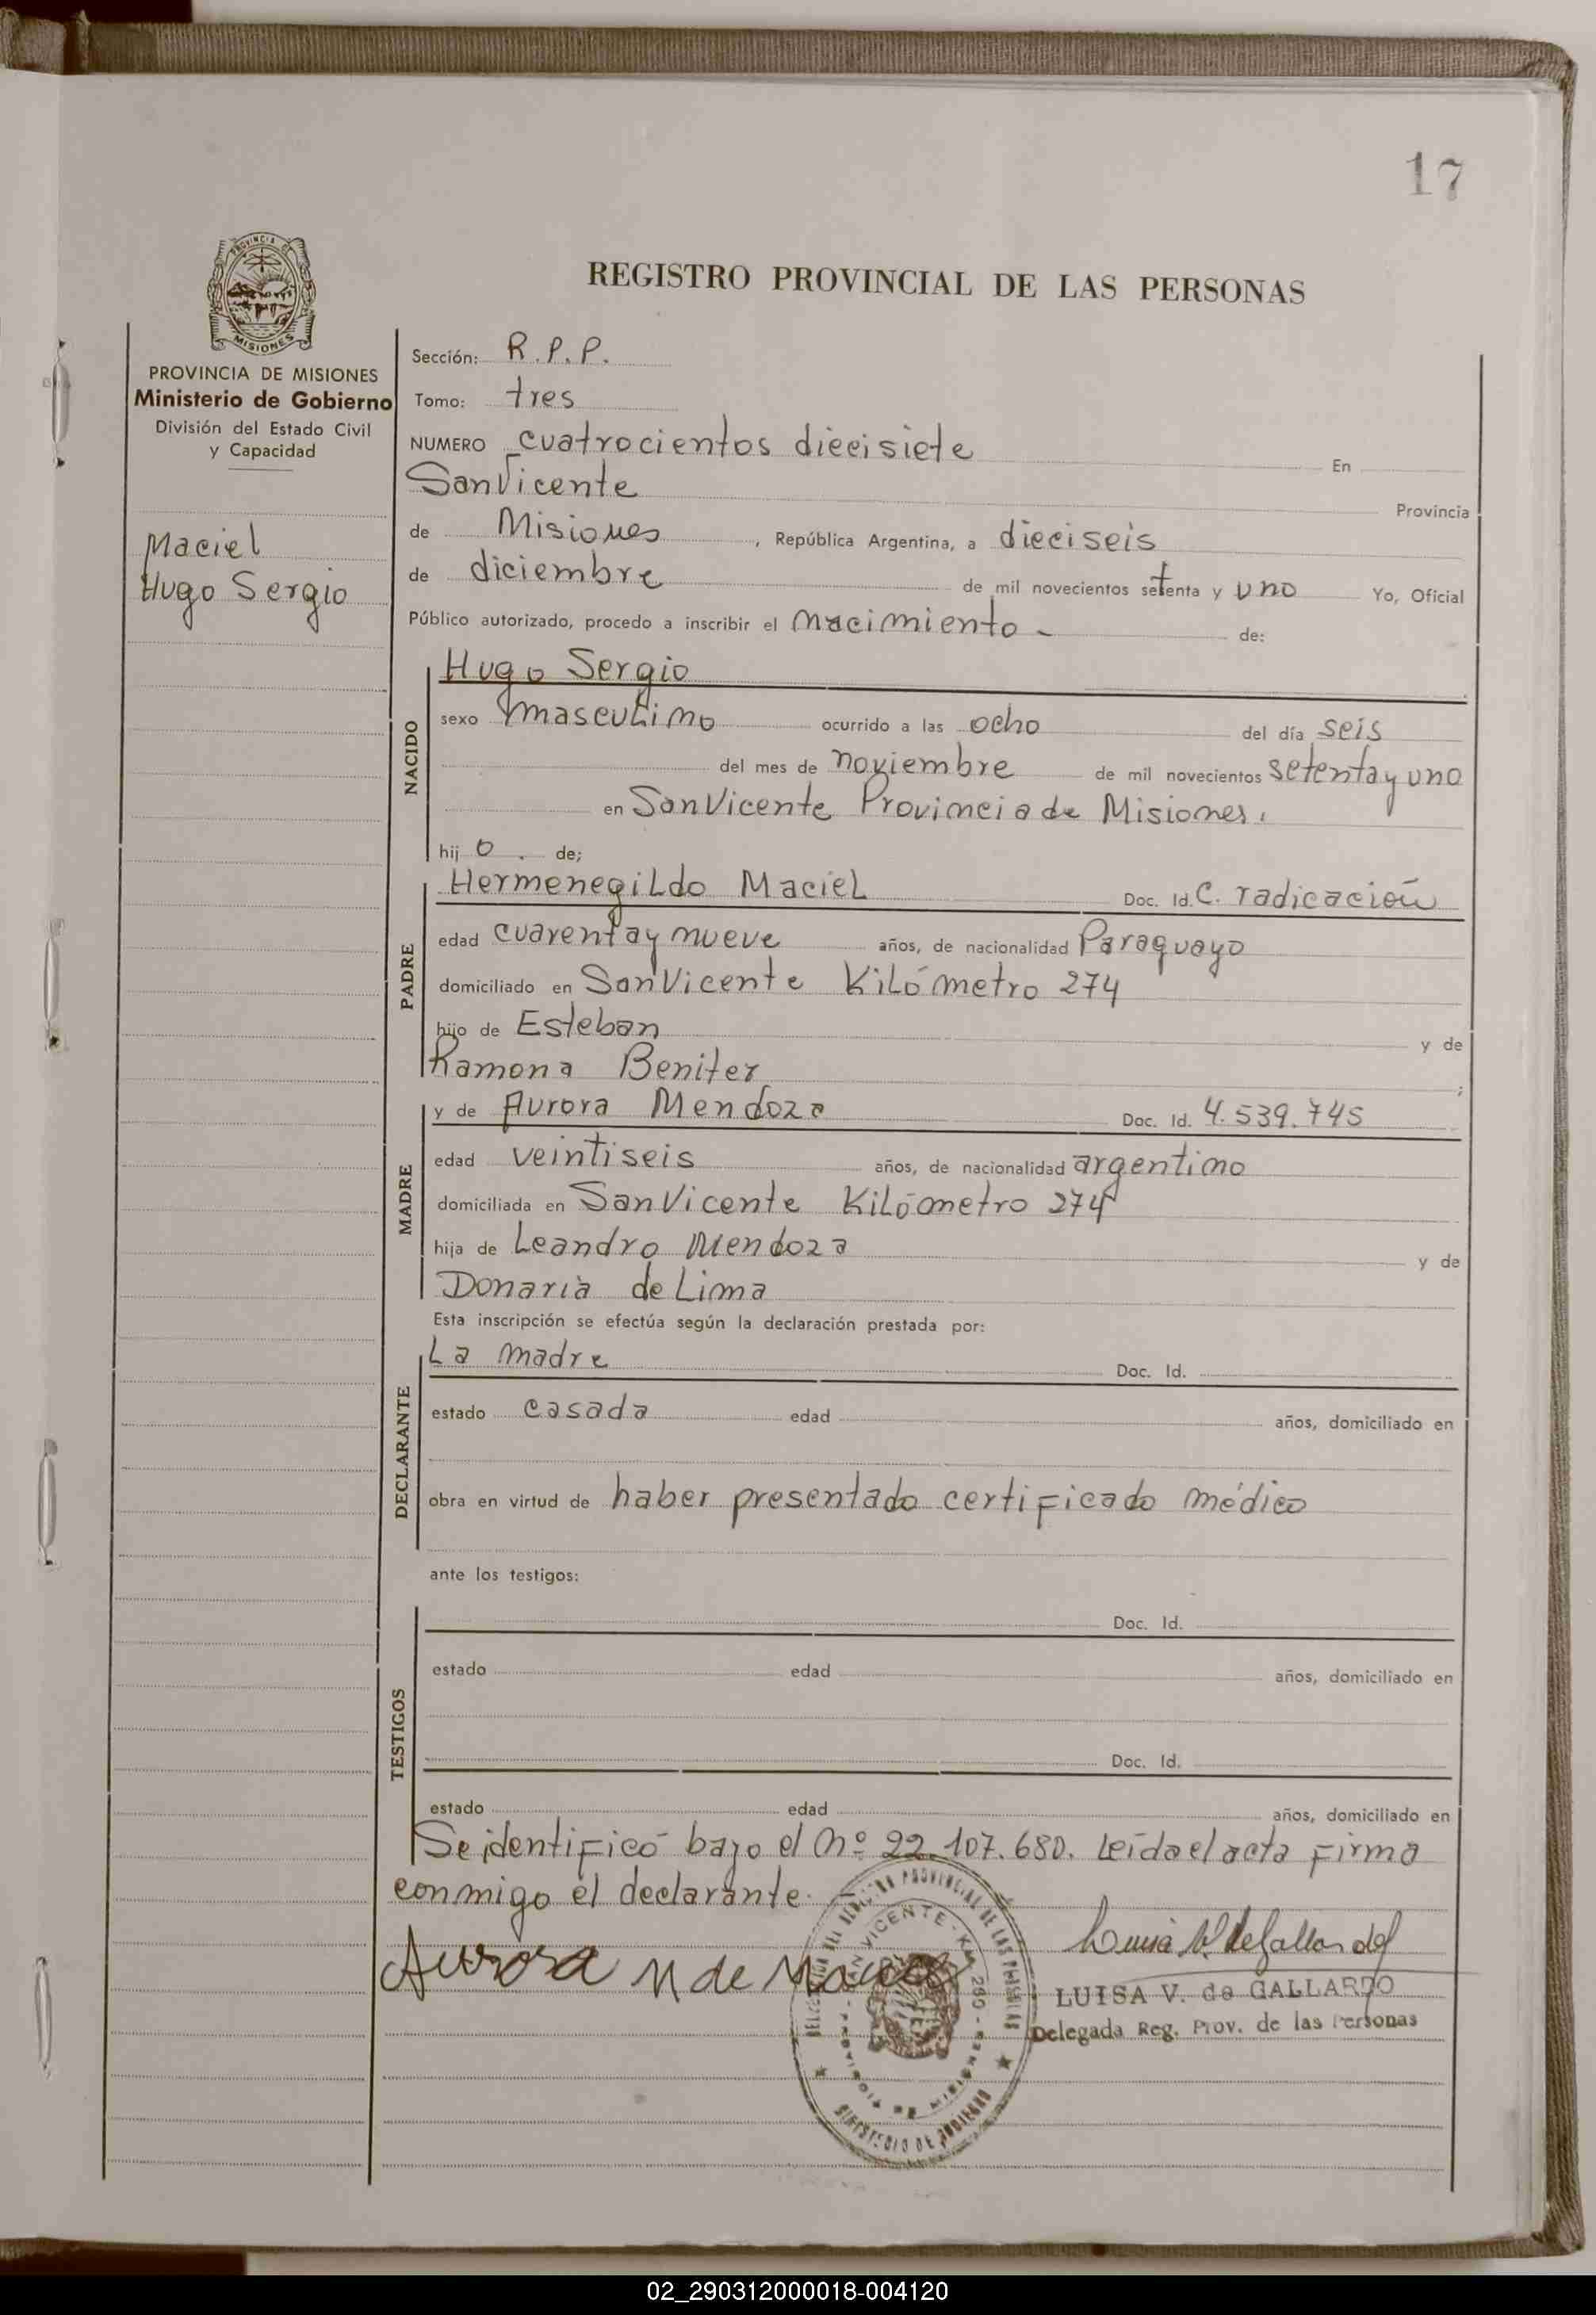 17
PROVINCIA DE
MISIONES
PROVINCIA DE MISIONES
Ministerio de Gobierno
División del Estado Civil
y Capacidad
Maciel
Hugo Sergio
REGISTRO PROVINCIAL DE LAS PERSONAS
Sección: R.P.P.
Tomo: tres
NUMERO cuatrocientos diecisiete En
San Vicente Provincia
de Misiones, República Argentina, a dieciseis
de diciembre de mil novecientos setenta y uno Yo, Oficial
Público autorizado, procedo a inscribir el nacimiento - de:
NACIDO
Hugo Sergio
sexo masculino ocurrido a las ocho del día seis
del mes de noviembre de mil novecientos setenta y uno
en San Vicente Provincia de Misiones.
hijo. de;
PADRE
Hermenegildo Maciel Doc. Id. C. radicación
edad cuarenta y nueve años, de nacionalidad Paraguayo
domiciliado en San Vicente Kilómetro 274
hijo de Esteban y de
Ramona Benitez ;
MADRE
y de Aurora Mendoza Doc. Id. 4.539.745
edad veintiseis años, de nacionalidad argentino
domiciliada en San Vicente Kilómetro 274
hija de Leandro Mendoza y de
Donaria de Lima
Esta inscripción se efectúa según la declaración prestada por:
DECLARANTE
La madre Doc. Id.
estado casada edad años, domiciliado en
obra en virtud de haber presentado certificado médico
ante los testigos:
TESTIGOS
Doc. Id.
estado edad años, domiciliado en
Doc. Id.
estado edad años, domiciliado en
Se identificó bajo el nº 22.107.680. Leída el acta firma
conmigo el declarante.
Aurora M de Maciel
LUISA V. de GALLARDO
Delegada Reg. Prov. de las Personas
02_290312000018-004120